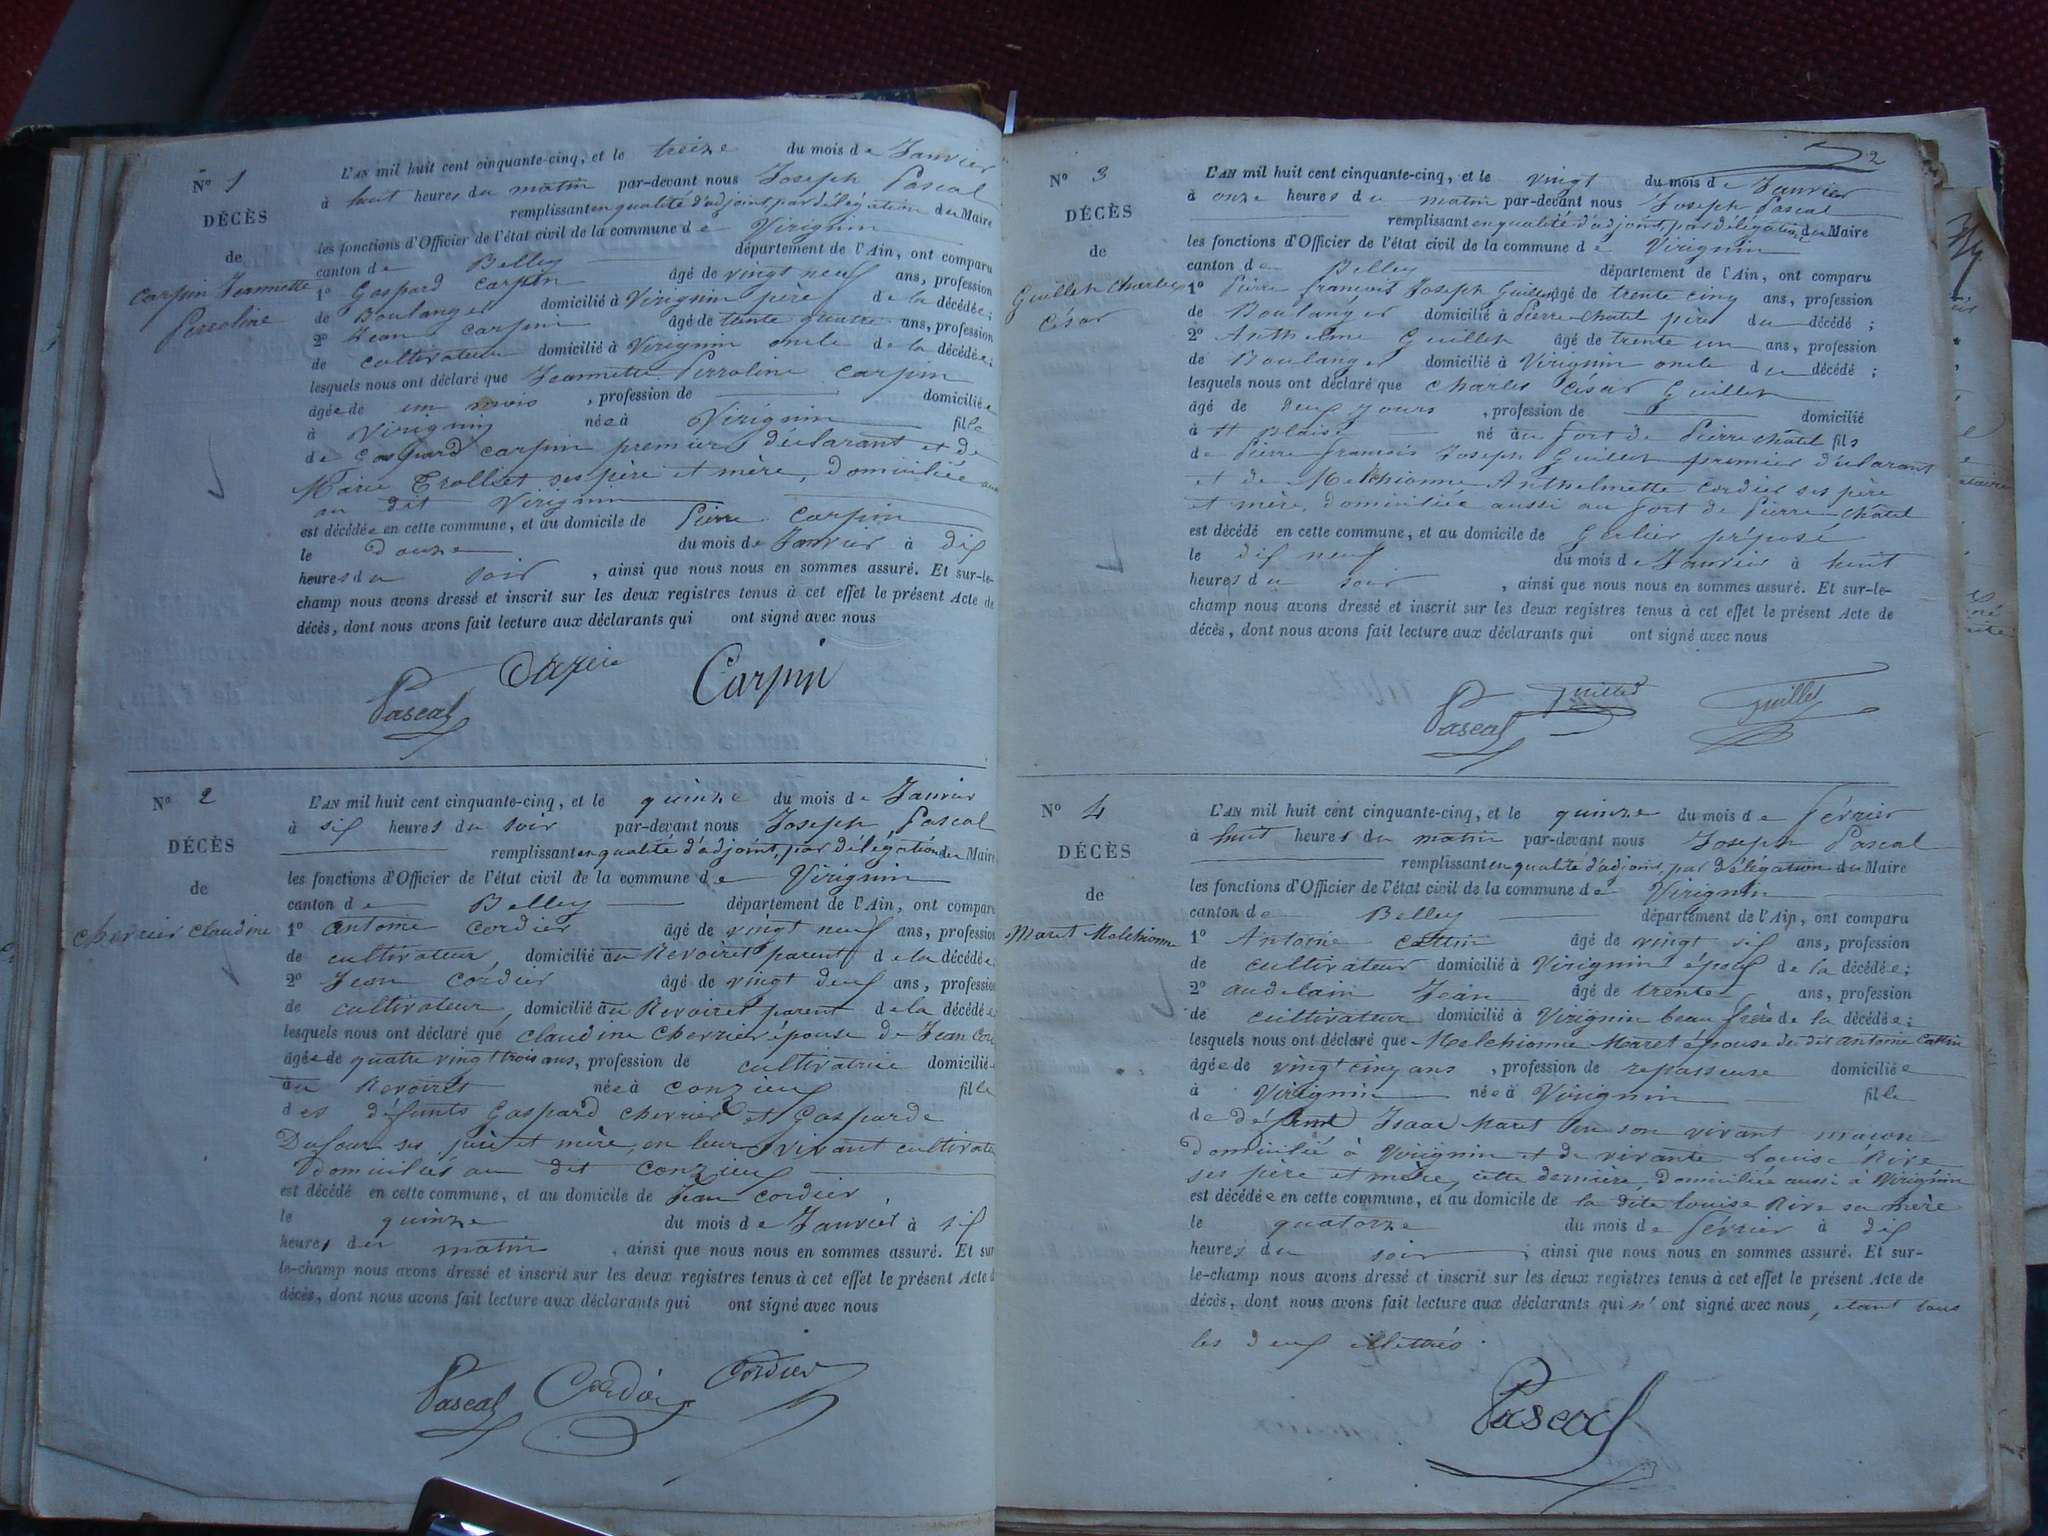 N° 1
DÉCÈS
de
Carpin Jeannette
Perroline
L'AN mil huit cent cinquante-cinq, et le treize du mois de Janvier
à huit heures du matin par-devant nous Joseph Pascal
remplissant en qualité d'adjoint, par délégation du Maire
les fonctions d'Officier de l'état civil de la commune de Virignin
canton de Belley département de l'Ain, ont comparu
1° Gaspard Carpin âgé de vingt neuf ans, profession
de Boulanger domicilié à Virignin père de la décédée ;
2° Jean Carpin âgé de trente quatre ans, profession
de cultivateur domicilié à Virignin oncle de la décédée ;
lesquels nous ont déclaré que Jeannette Perroline Carpin
âgée de un mois , profession de domiciliée
à Virignin née à Virignin fille
de Gaspard Carpin premier déclarant et de
Marie Trolliet ses père et mère, domiciliés
au dit Virignin
est décédée en cette commune, et au domicile de Pierre Carpin
le douze du mois de Janvier à dix
heures du soir , ainsi que nous nous en sommes assuré. Et sur-le-
champ nous avons dressé et inscrit sur les deux registres tenus à cet effet le présent Acte de
décès, dont nous avons fait lecture aux déclarants qui ont signé avec nous
Pascal Carpin
N° 2
DÉCÈS
de
Cherrier Claudine
L'AN mil huit cent cinquante-cinq, et le quinze du mois de Janvier
à six heures du soir par-devant nous Joseph Pascal
remplissant en qualité d'adjoint, par délégation du Maire
les fonctions d'Officier de l'état civil de la commune de Virignin
canton de Belley département de l'Ain, ont comparu
1° Antoine Cordier âgé de vingt neuf ans, profession
de cultivateur, domicilié au Revoiret parent de la décédée
2° Jean Cordier âgé de vingt deux ans, profession
de cultivateur, domicilié au Revoiret parent de la décédée
lesquels nous ont déclaré que Claudine Cherrier épouse de Jean Cor
âgée de quatre vingt trois ans, profession de cultivatrice domiciliée
au Revoiret née à Conzieux fille
des défunts Gaspard Cherrier et Gasparde
Dufour ses père et mère, en leur vivant cultivate
domiciliés au dit Conzieux
est décédé en cette commune, et au domicile de Jean Cordier,
le quinze du mois de Janvier à six
heures du matin , ainsi que nous nous en sommes assuré. Et sur
le-champ nous avons dressé et inscrit sur les deux registres tenus à cet effet le présent Acte d
décès, dont nous avons fait lecture aux déclarants qui ont signé avec nous
Pascal Cordier Cordier
2
N° 3
DÉCÈS
de
Guillet Charles
César
L'AN mil huit cent cinquante-cinq, et le vingt du mois de Janvier
à onze heures du matin par-devant nous Joseph Pascal
remplissant en qualité d'adjoint, par délégation du Maire
les fonctions d'Officier de l'état civil de la commune de Virignin
canton de Belley département de l'Ain, ont comparu
1° Pierre françois Joseph Guillet âgé de trente cinq ans, profession
de Boulanger domicilié à Pierre-châtel père du décédé ;
2° Anthelme Guillet âgé de trente un ans, profession
de Boulanger domicilié à Virignin oncle du décédé ;
lesquels nous ont déclaré que Charles César Guillet
âgé de deux jours , profession de domicilié
à St Blaise né au fort de Pierre châtel fils
de Pierre françois Joseph Guillet premier déclarant
et de Melchionne Anthelmette Cordier ses père
et mère, domiciliés aussi au fort de Pierre-châtel
est décédé en cette commune, et au domicile de Gerlier préposé
le dix neuf du mois de Janvier à huit
heures du soir , ainsi que nous nous en sommes assuré. Et sur-le-
champ nous avons dressé et inscrit sur les deux registres tenus à cet effet le présent Acte de
décès, dont nous avons fait lecture aux déclarants qui ont signé avec nous
Pascal Guillet Guillet
N° 4
DÉCÈS
de
Maret Melchionne
L'AN mil huit cent cinquante-cinq, et le quinze du mois de février
à huit heures du matin par-devant nous Joseph Pascal
remplissant en qualité d'adjoint, par délégation du Maire
les fonctions d'Officier de l'état civil de la commune de Virignin
canton de Belley département de l'Ain, ont comparu
1° Antoine Cattin âgé de vingt six ans, profession
de cultivateur domicilié à Virignin époux de la décédée ;
2° Audelain Jean âgé de trente ans, profession
de cultivateur domicilié à Virignin beau frère de la décédée ;
lesquels nous ont déclaré que Melchionne Maret épouse du dit Antoine Cattin
âgée de vingt cinq ans , profession de repasseuse domiciliée
à Virignin née à Virignin fille
de défunt Isaac Maret en son vivant maçon
domicilié à Virignin et de vivante Louise Rive
ses père et mère, cette dernière domiciliée aussi à Virignin
est décédée en cette commune, et au domicile de la dite Louise Rive sa mère
le quatorze du mois de février à dix
heures du soir ; ainsi que nous nous en sommes assuré. Et sur-
le-champ nous avons dressé et inscrit sur les deux registres tenus à cet effet le présent Acte de
décès, dont nous avons fait lecture aux déclarants qui n'ont signé avec nous, étant tous
les deux illettrés.
Pascal